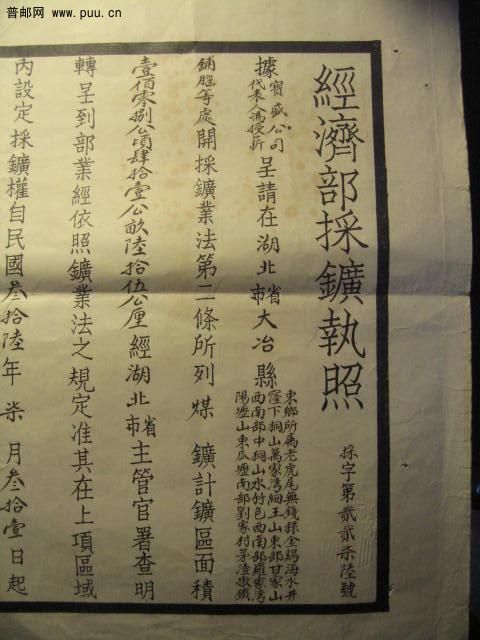 普邮网
www.puu.cn
經濟部採鑛執照
採字第貳貳柒陸號
據寶盛公司代表人馮授薪呈請在湖北省市大冶縣
東鄉所屬老虎尾無錢
金鷄海水井
窪下桐山萬家湾細王山東部甘家山
西南部中桐山水竹包西南部羅家湾
陽壢山東瓜壢南部劉家村茅
鐵
鋪壋等處開採鑛業法第二條所列煤 鑛計鑛區面積
壹佰零捌公頃肆拾壹公畝陸拾伍公厘經湖北省市主管官署查明
轉呈到部業經依照鑛業法之規定准其在上項區域
內設定採鑛權自民國叁拾陸年柒月叁拾壹日起